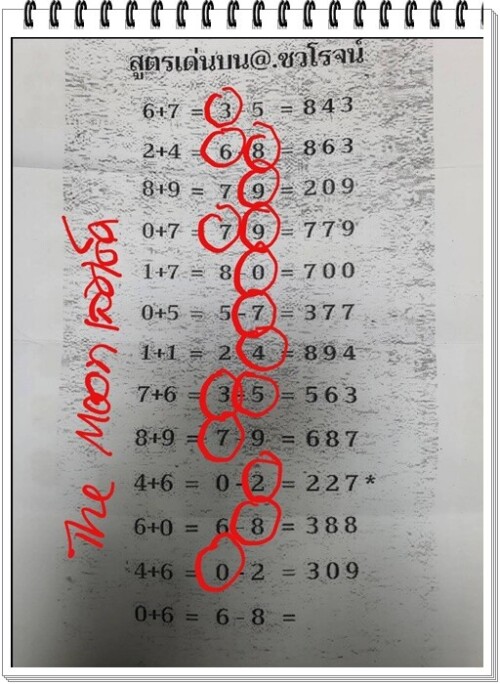 สูตรเด่นบน@.ชวโรจน์
6+7 = 3 5 = 843
2+4 = 6-8 = 863
8+9 = 7 9 = 209
0+7 = 7 9 = 779
1+7 = 8 0 = 700
0+5 = 5-7 = 377
1+1 = 2 4 = 894
7+6 = 3-5 = 563
8+9 = 7-9 = 687
4+6 = 0-2 = 227*
6+0 = 6-8 = 388
4+6 = 0-2 = 309
0+6 = 6-8 =
The Moon